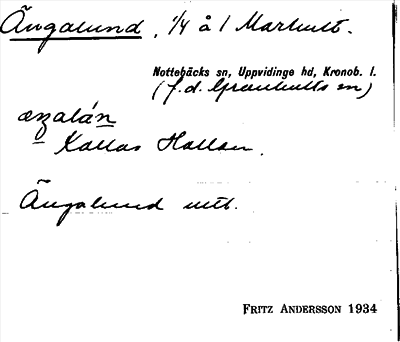 Ängalund, 1/4 å 1 Marhult.
Nottebäcks sn, Uppvidinge hd, Kronob. l.
(f.d. Granhults sn)
æŋalán
Kallas Hallan.
Ängalund mtl.
FRITZ ANDERSSON 1934